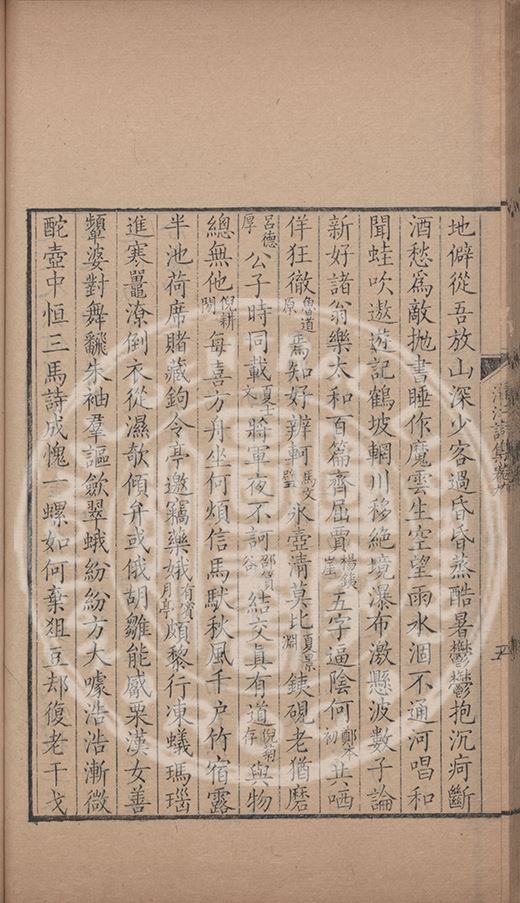 地僻從吾放山深少客過昏昏蒸酷暑鬱鬱抱沉疴斷
酒愁爲敵抛書睡作魔雲生空望雨水涸不通河唱和
聞蛙吹遨遊記鶴坡輞川移絶境瀑布激懸波數子論
新好諸翁樂太和百篇齊屈賈楊鐵崖五字逼陰何鄭本初共哂
佯狂徹魯道原焉知好辨軻馬文璧氷壺清莫比夏景淵鐵硯老猶磨
呂德厚公子時同載夏士文將軍夜不訶邵賓谷結交真有道倪菊存與物
總無他倪耕閒每喜方舟坐何煩信馬馱秋風千户竹宿露
半池荷席賭藏鉤令亭邀竊藥娥有賓月亭頗黎行凍蟻瑪瑙
進寒鼉潦倒衣從濕欹傾弁或俄胡雛能感栗漢女善
顰婆對舞飜朱袖羣謳歛翠蛾紛紛方大噱浩浩漸微
酡壺中恒三馬詩成愧一螺如何棄俎豆却復老干戈